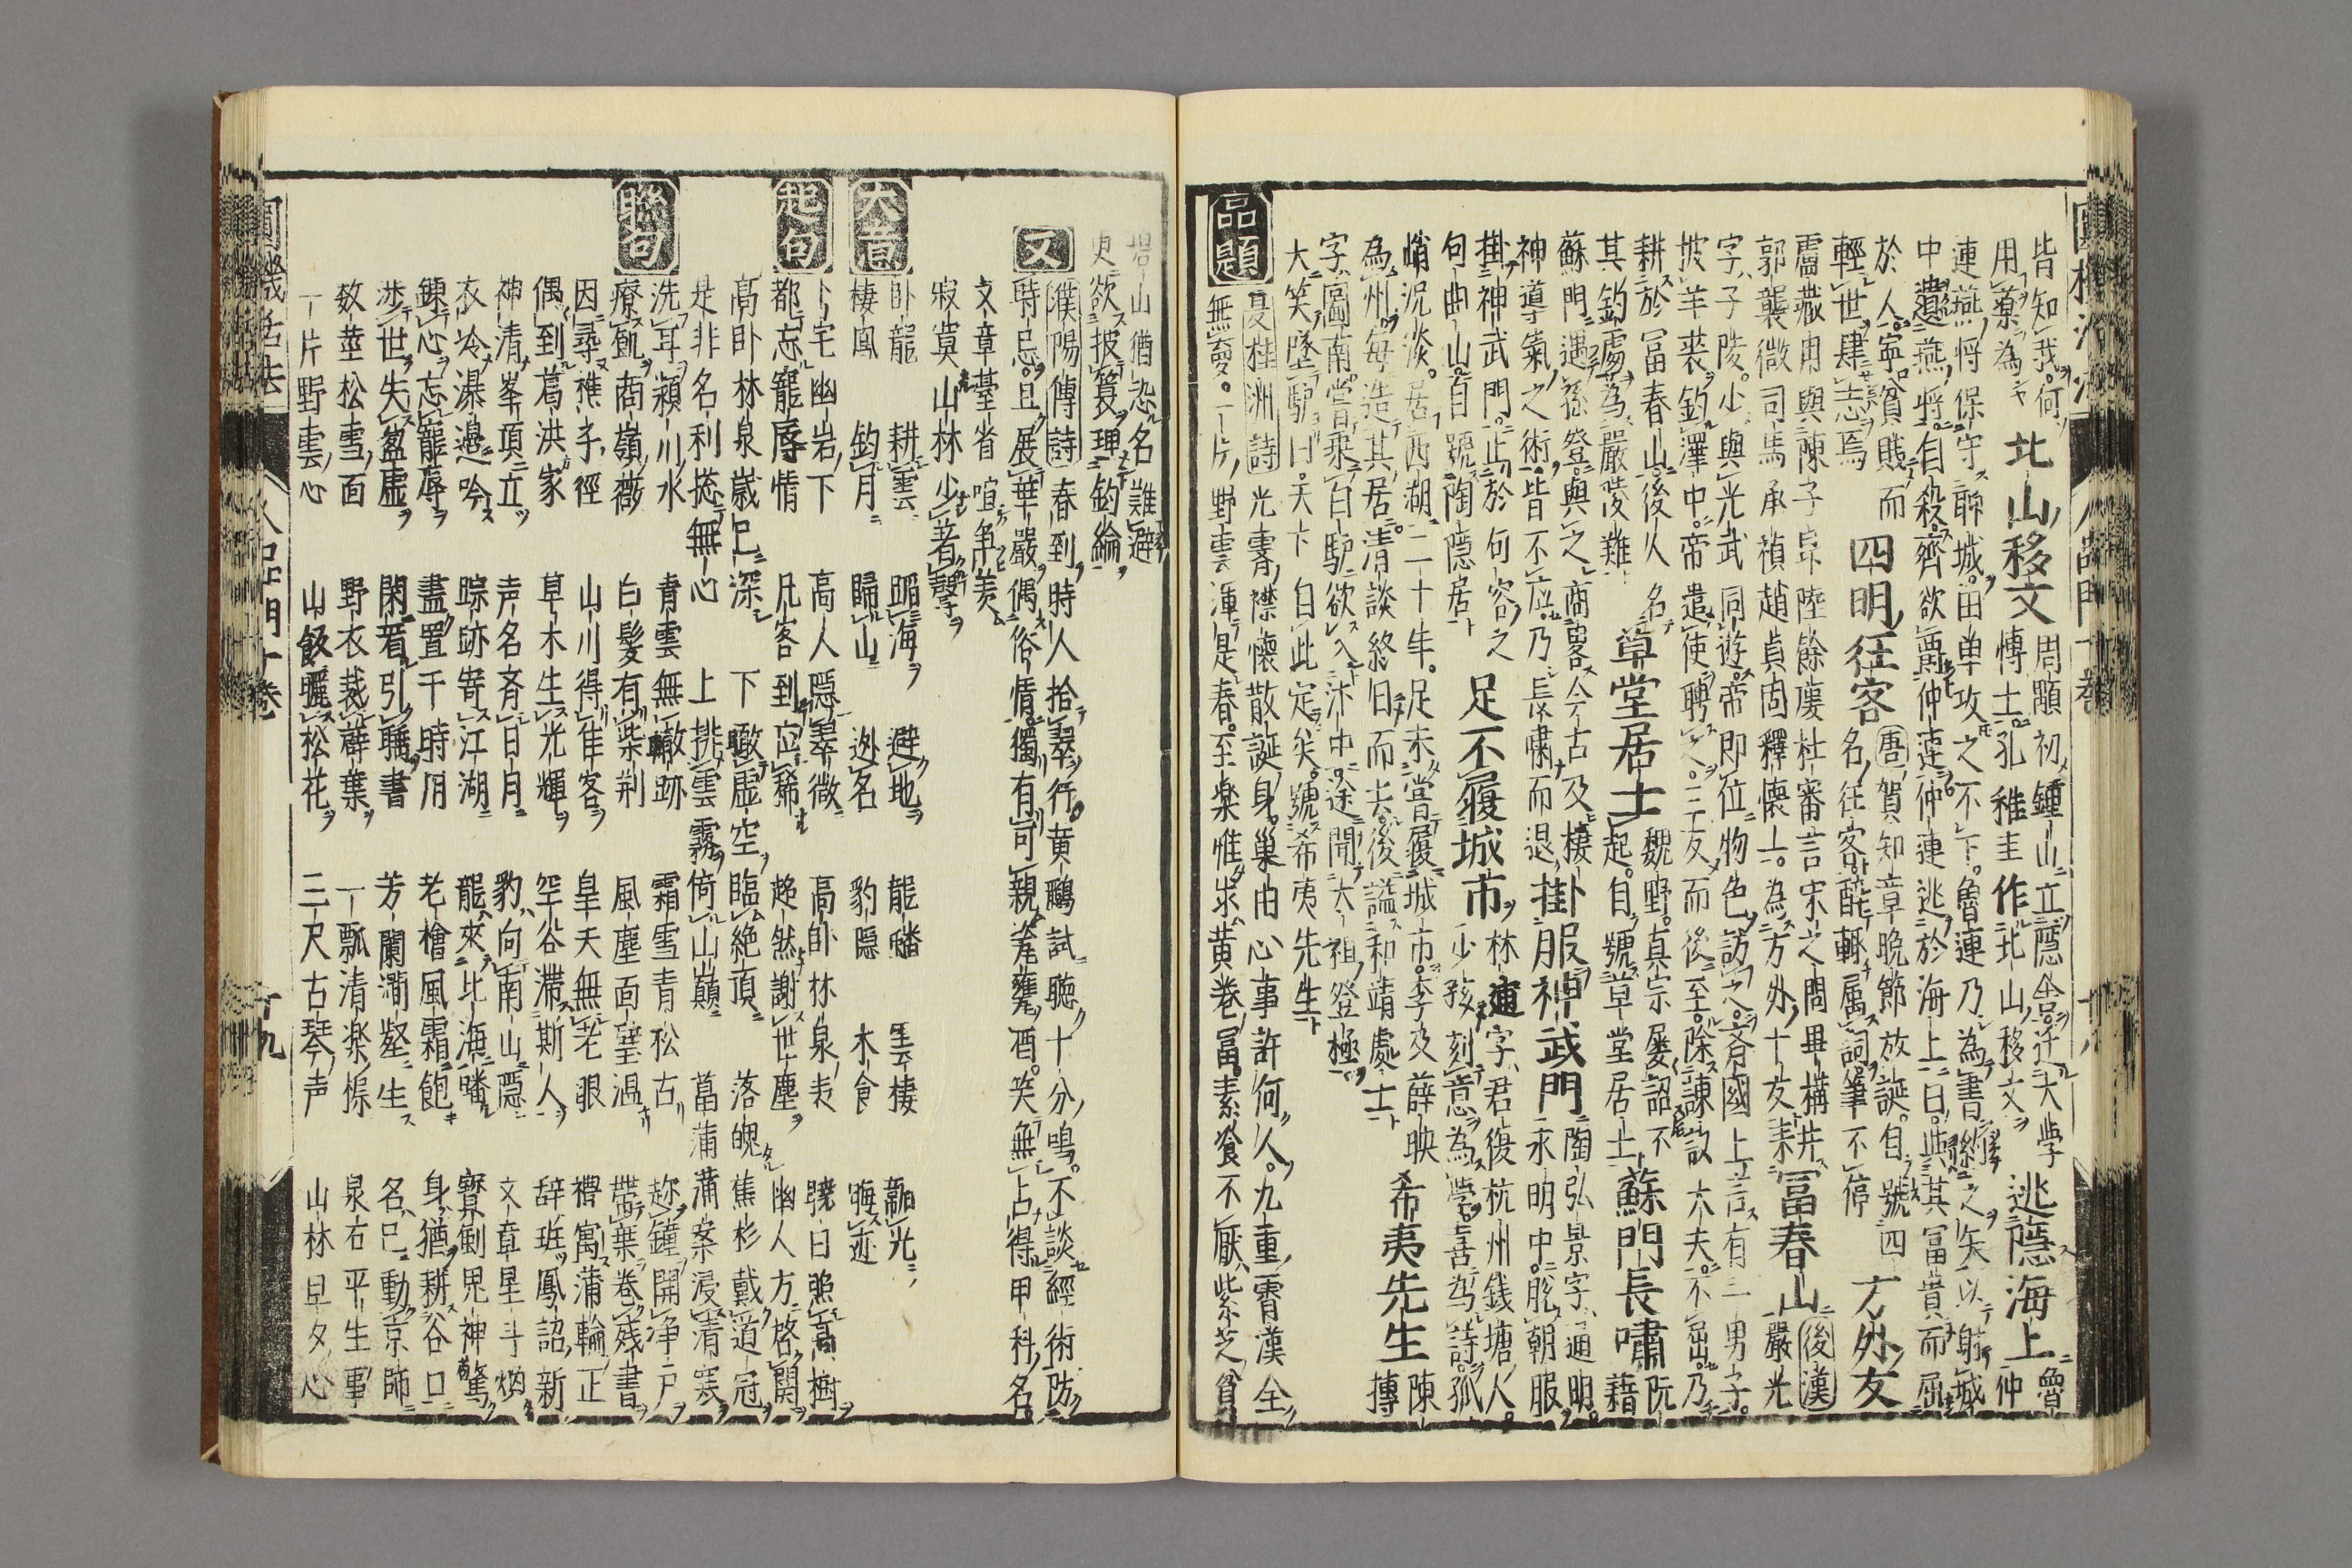 皆知我何
用藥為
北山移文
周顒初鍾山立隱舍逕大学
博士孔稚圭作北山移文
逃隱海上
魯仲
連燕將保守聊城田單攻之不下魯連乃為書約之矢以射城
中遺燕將自殺齊欲爵仲連仲連逃於海上曰與其冨貴而屈
於人寧貧賤而
輕世肆志焉
四明狂客
唐賀知章晩節放誕自號四
名狂客醉輒属詞筆不停
方外友
盧藏用與陳子昂陸餘慶杜審言宋之問畢構
郭襲微司馬承禎趙貞固釋懷一為方外十友
冨春山
後漢
嚴光
字子陵少與光武同遊帝即位物色訪之齊國上言有一男子
披羊裘釣澤中帝遣使聘之三反而後至除諫議大夫不屈乃
耕於冨春山後人名
其釣處為嚴陵難
草堂居士
魏野真宗屢詔不
起自號草堂居士
蘇門長嘯
阮籍
蘇門遇孫登與之商畧今古及棲
神導氣之術皆不應乃長嘯而退
掛服神武門
陶弘景字通明
永明中脫朝服
掛神武門止於句容之
句曲山自號陶隱居
足不履城市
林逋字君復杭州錢塘人
少孩刻意為學喜為詩孤
峭況淡居西湖二十年足未嘗履城市李及薛映
為州每造其居清談終日而去後謚和靖處士
希夷先生
陳摶
字圖南嘗乘白驢欲入汴中途聞太祖登極
大笑墜驢曰天下自此定矣號希夷先生
品題
夏桂洲詩
光霽襟懷散誕身巢由心事許何人九重霄漢全
無夢一片野雲渾是春至樂惟求黄卷冨素飡不厭紫芝貧
山猶恐名難避
更欲披簑理釣綸
又
濮陽傳詩
春到時人拾翠行黄鸝試聴十分鳴不談經術防
時忌且展華嚴偶俗情獨有可親差甕酒笑無占得甲科名
文章臺省喧争美
寂寞山林少著聲
大意
卧龍
耕雲
蹈海
避地
龍蟠
雲棲
韜光
棲鳳
釣月
歸山
逃名
豹隠
木食
晦迹
起句
卜宅幽岩下
高人隠翠微
高卧林泉表
曉日照高樹
都忘寵辱情
凡客到應稀
超然謝世塵
幽人方啓關
高卧林泉歳已深
下瞰虛空臨絶頂
落魄蕉杉戴道冠
是非名利摠無心
上挑雲霧倚山巔
菖蒲蒲案浸清寒
聯句
洗耳潁川水
青雲無轍跡
霜雪青松古
趂鐘開浄戸
療飢商嶺薇
白髮有柴荆
風塵面塵温
帶葉卷残書
因尋樵子徑
山川得隹客
皇天無老眼
禮寓蒲輪正
偶到葛洪家
草木生光輝
空谷滯斯人
辞班鳳詔新
神清峯頂立
声名斉日月
豹向南山隠
文章星斗煥
衣冷瀑邉吟
踪跡寄江湖
龍來北海蟠
寳劍鬼神驚
錬心忘寵辱
盡置干時用
老檜風霜飽
身猶耕谷口
渉世失盈虚
閑看引睡書
芳蘭澗壑生
名已動京師
数莖松雪面
野衣裁薜葉
一瓢清楽桮
泉石平生事
一片野雲心
山飯曬松花
三尺古琴声
山林旦夕心
圓機活法
人品門十卷
十九